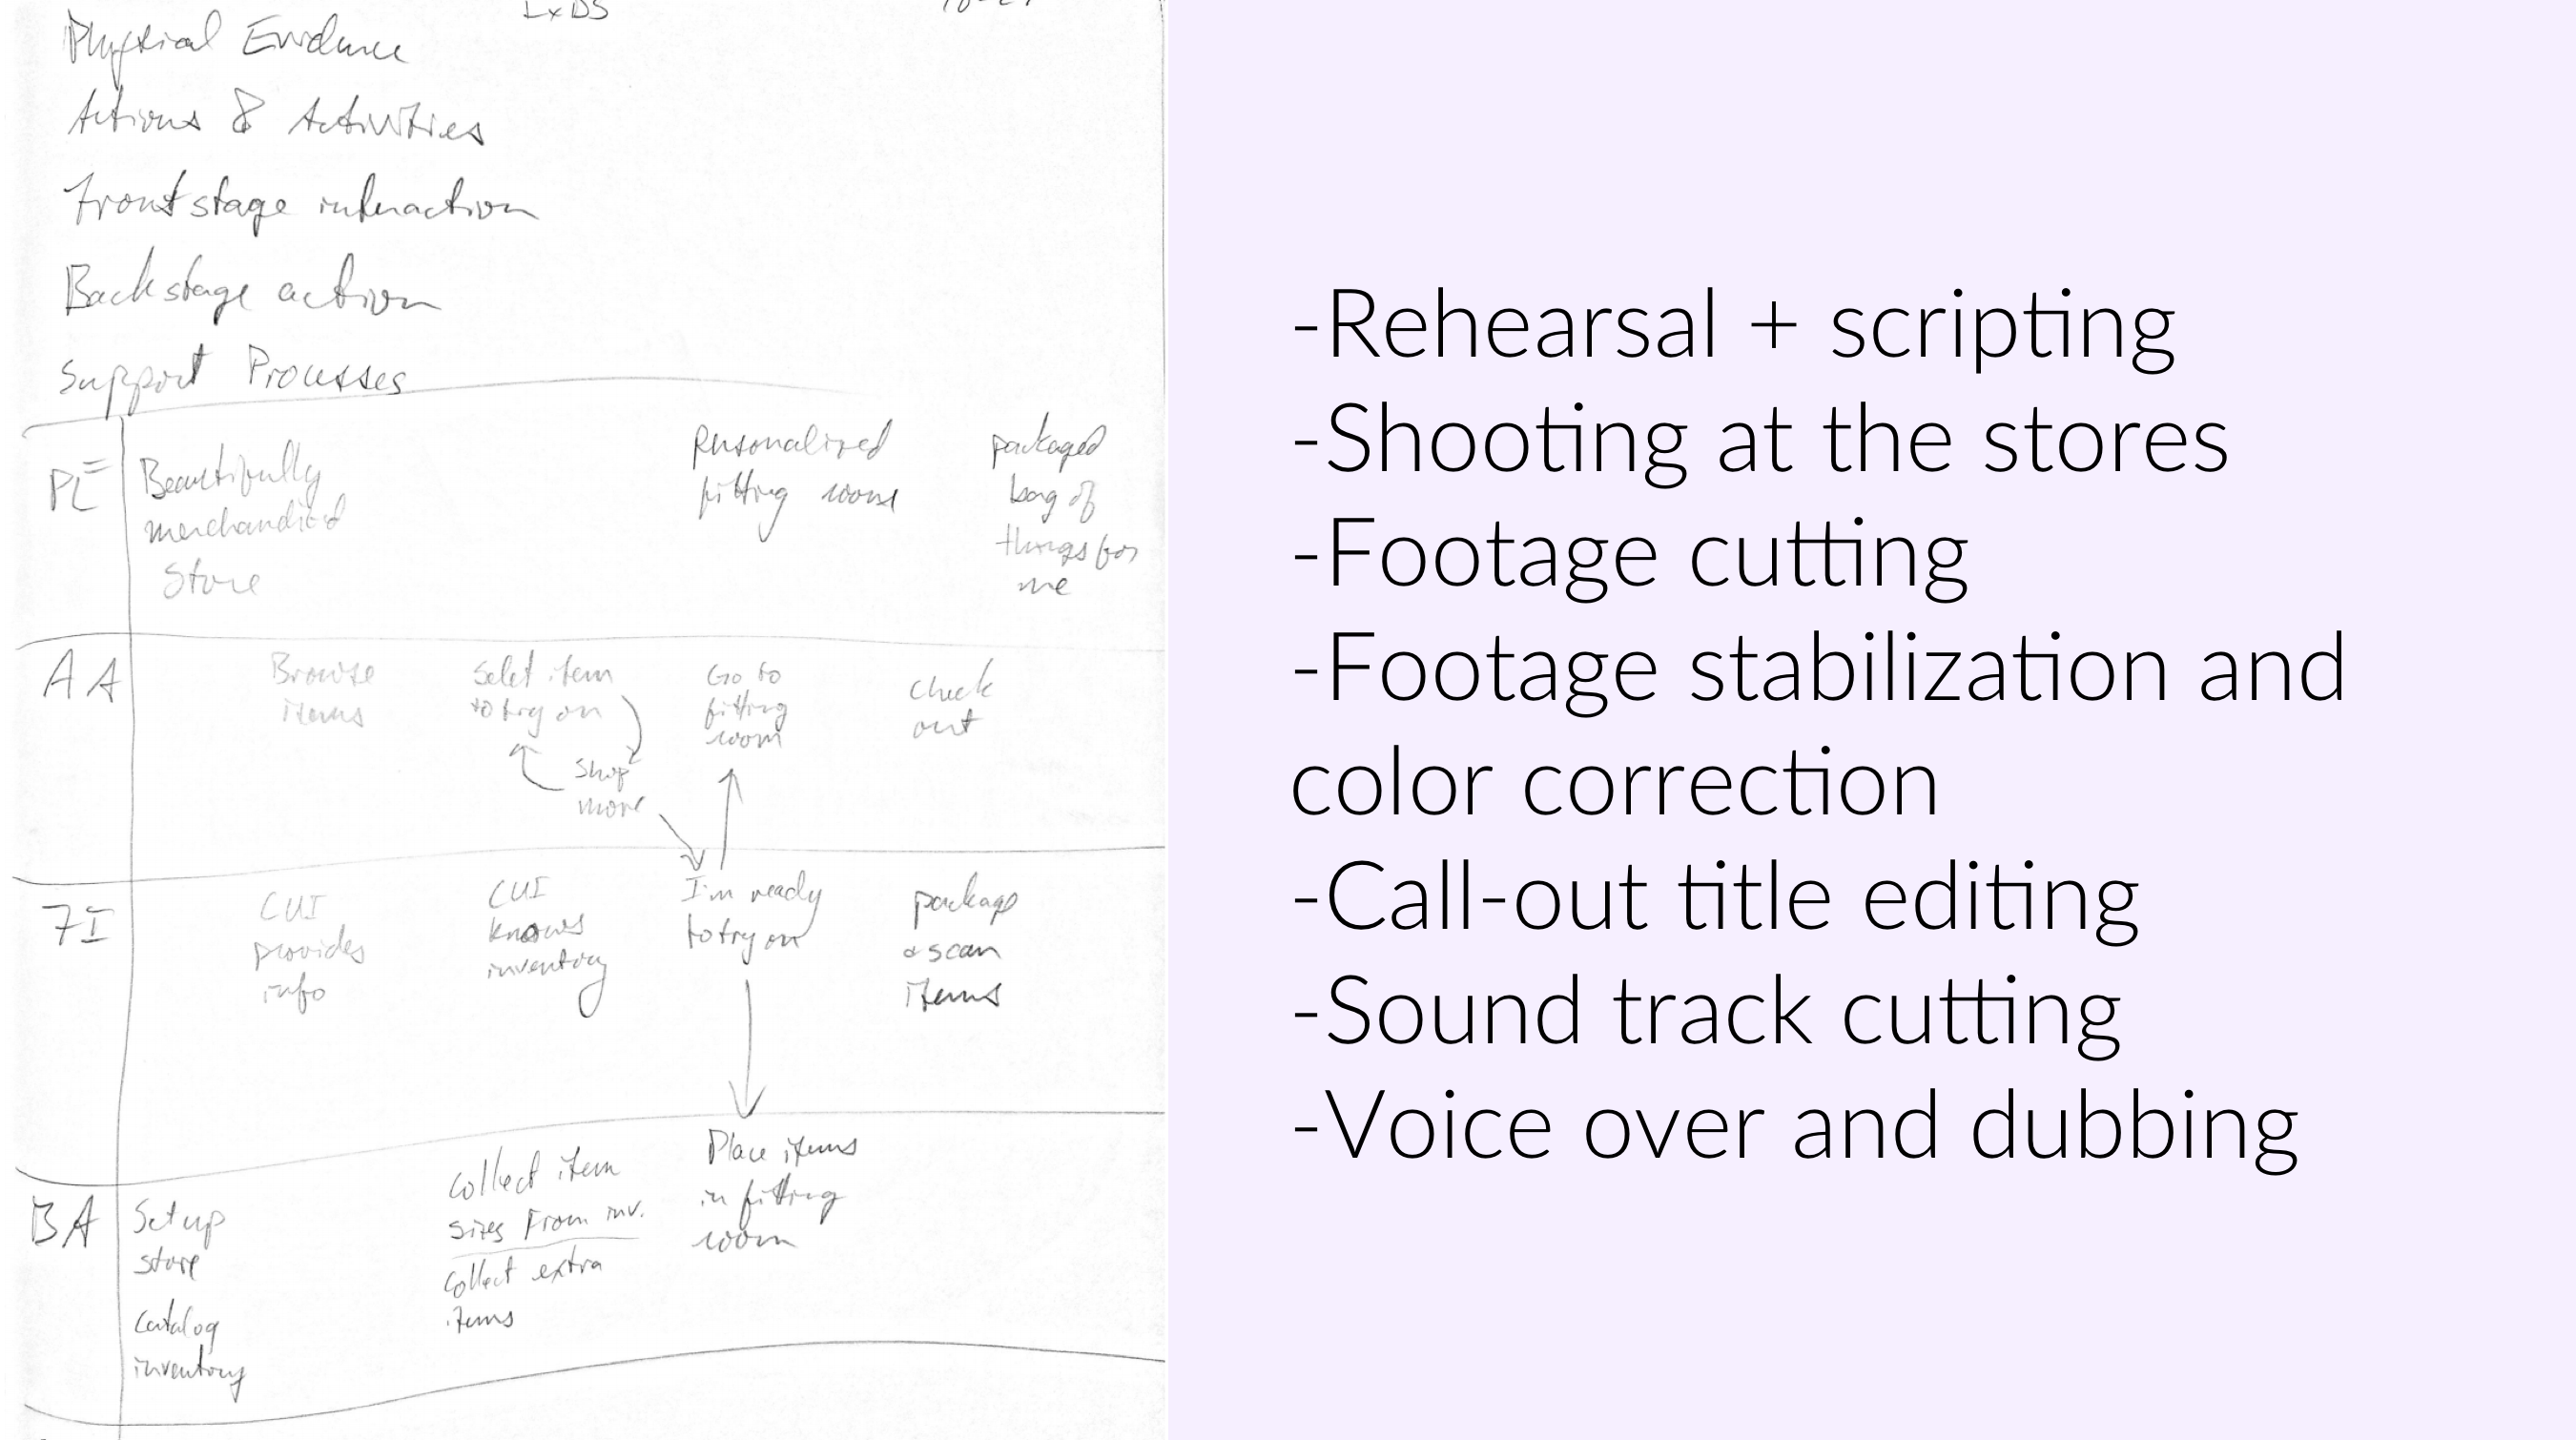 LxDS
Physical Evidence
Actions & Activities
Frontstage interaction
Backstage action
Support Processes
PE
Beautifully
merchandised
Store
Personalized
fitting room
packaged
bag of
things for
me
AA
Browse
items
Select item
to try on
Shop
more
Go to
fitting
room
Check
out
FI
CUI
provides
info
CUI
knows
inventory
I'm ready
to try on
package
& scan
items
BA
Setup
store
Catalog
inventory
Collect item
sizes From inv.
Collect extra
items
Place items
in fitting
room
-Rehearsal + scripting
-Shooting at the stores
-Footage cutting
-Footage stabilization and
color correction
-Call-out title editing
-Sound track cutting
-Voice over and dubbing